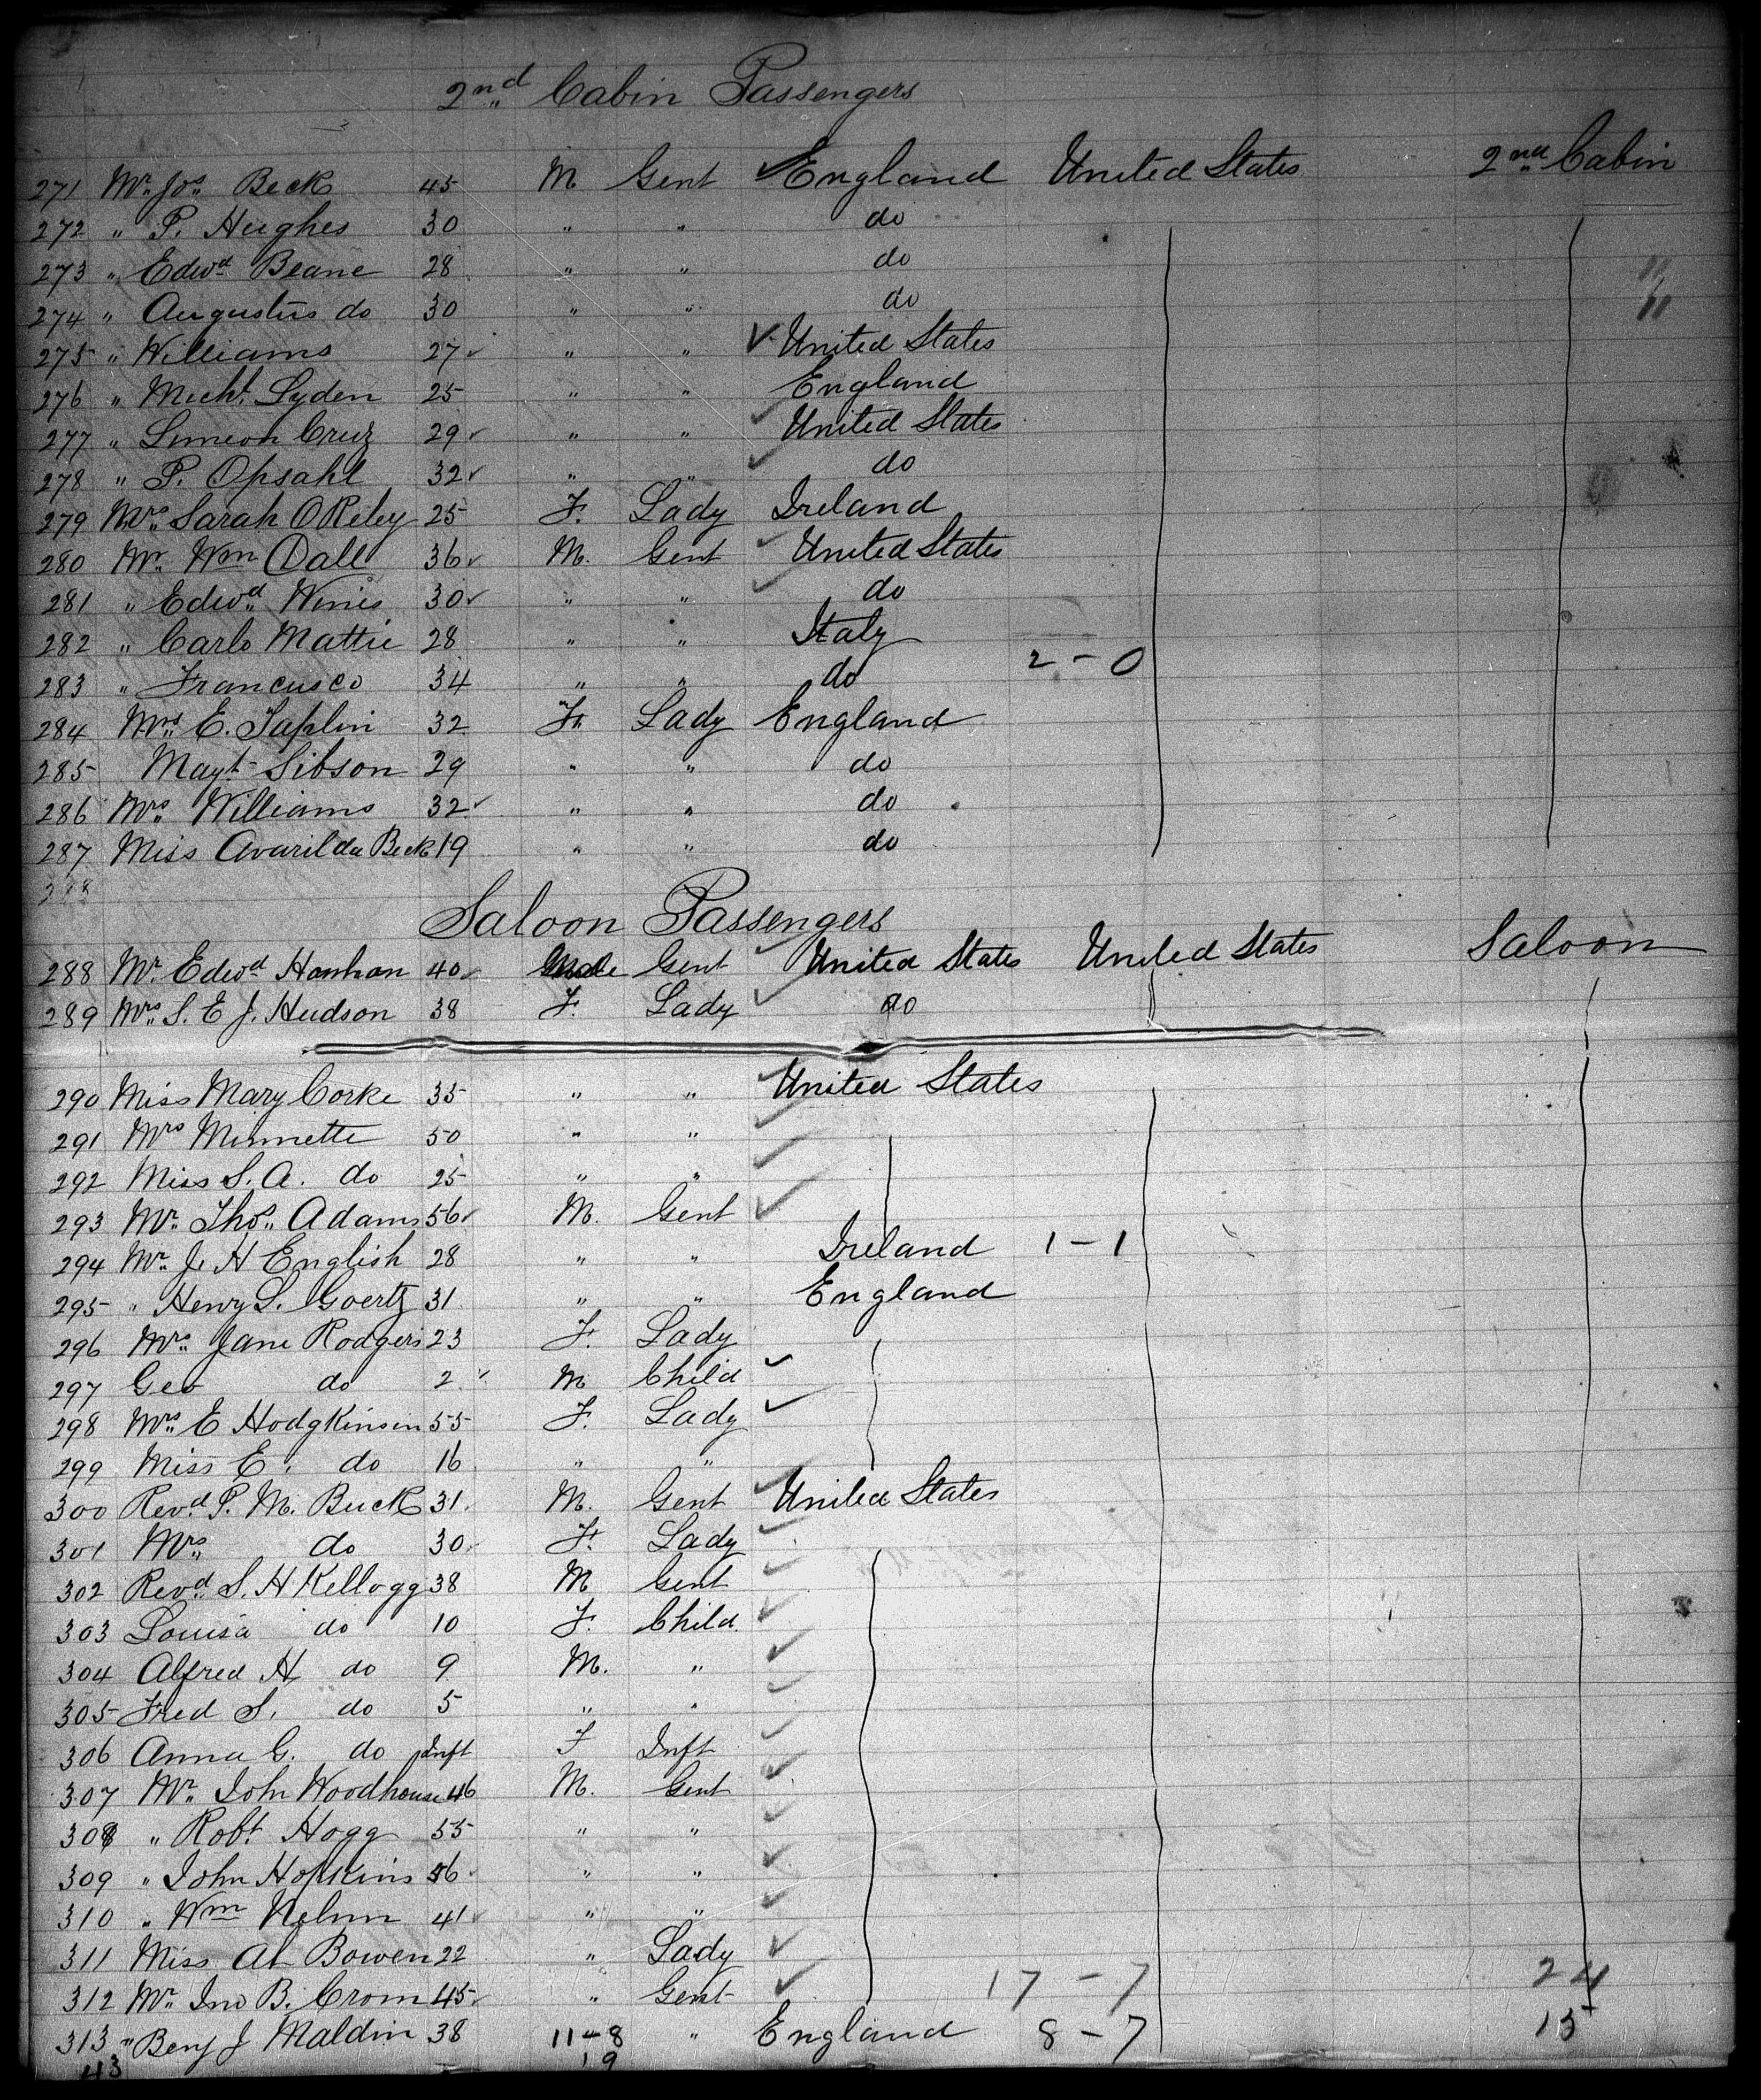 2nd Cabin Passengers
271 Mr. Jos. Beck 45 M Gent England United States 2nd Cabin
272 " P. Hughes 30 " " do
273 " Edwd Beane 28 " " do
274 " Augustus do 30 " " do
275 " Williams 27 " " United States
276 " Micht. Lyden 25 " " England
277 " Simeon Cruz 29 " " United States
278 " P. Opsahl 32 " " do
279 Mrs Sarah O Reley 25 F. Lady Ireland
280 Mr. Wm Dall 36 M. Gent United States
281 " Edwd 30 " " do
282 " Carlo Mattie 28 " " Italy
283 " Francusco 34 " " do 2 - 0
284 Mrs E. Taplin 32 F. Lady England
285 Magt Sibson 29 " " do
286 Mrs Williams 32 " " do
287 Miss Avarilda Beck 19 " " do
Saloon Passengers
288 Mr. Edwd Hanhan 40 Male Gent United States United States Saloon
289 Mrs. S. E J. Hudson 38 F. Lady do
290 Miss Mary Corke 35 " " United States
291 Mrs Minnette 50 " "
292 Miss S. A. do 25 " "
293 Mr. Thos. Adams 56 M. Gent
294 Mr. J. H English 28 " " Ireland 1 - 1
295 " Henry L. Goertz 31 " " England
296 Mrs. Jane Rodgers 23 F. Lady
297 Geo do 2 M Child
298 Mrs E Hodgkinson 55 F. Lady
299 Miss E. do 16 " "
300 Revd. P. M. Buck 31 M. Gent United States
301 Mrs. do 30 F. Lady
302 Revd. S. H Kellogg 38 M Gent
303 Louisa do 10 F. Child
304 Alfred H do 9 M. "
305 Fred S. do 5 " "
306 Anna G. do Inft F Inft
307 Mr. John Woodhouse 46 M. Gent
308 " Robt Hogg 55 " "
309 " John Hopkins 56 " "
310 " Wm 41 " "
311 Miss Bowen 22 " Lady
312 Mr. Jno B. Crom 45 " Gent 17 - 7 24
313 " Benj J Maldin 38 11-8 " England 8 - 7 15
43 19